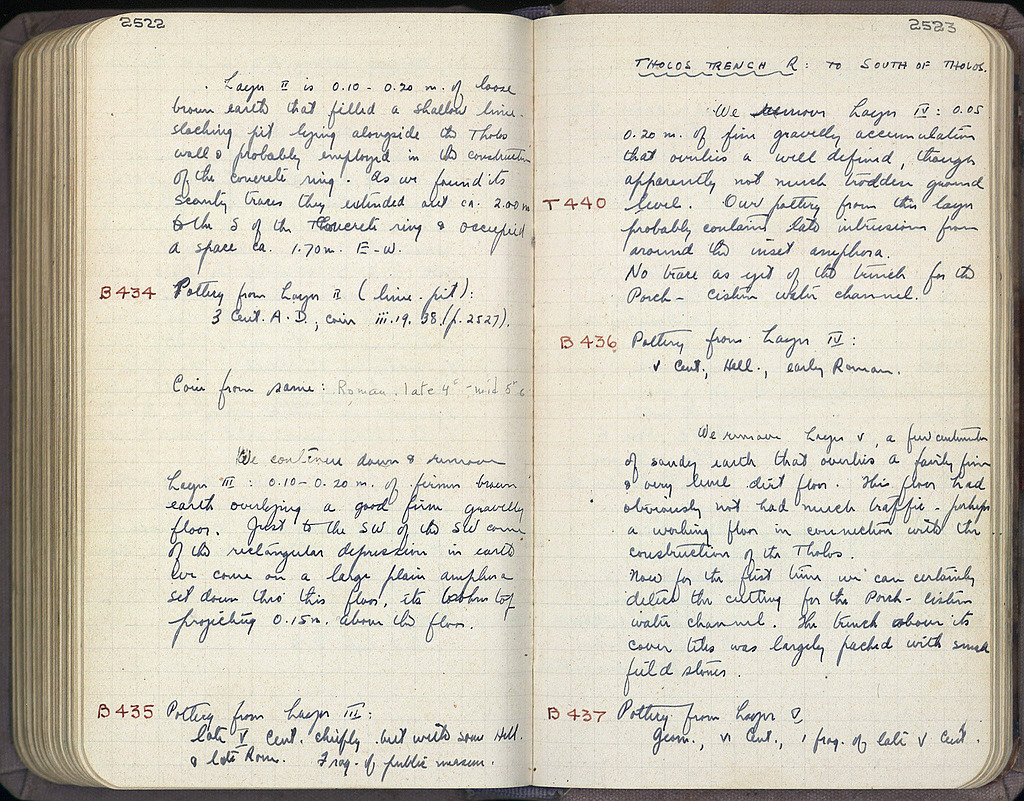 2522
Layer II is 0.10 - 0.20 m. of loose
brown earth that filled a shallow lime-
slacking pit lying alongside the Tholos
wall & probably employed in the construction
of the concrete ring. As we found its
scanty traces they extended out ca. 2.00 m
to the S of the concrete ring & occupied
a space ca. 1.70 m. E-W.
B 434 Pottery from Layer II (lime-pit):
3 Cent. A.D., coin iii.19.38 (p. 2527).
Coin from same: Roman, late 4c - mid 5th c
We continue down & remove
Layer III: 0.10 - 0.20 m. of firmer brown
earth overlying a good firm gravelly
floor. Just to the SW of the SW corner
of the rectangular depression in earth
we come on a large plain amphora
set down thro' this floor, its top
projecting 0.15 m. above the floor.
B 435 Pottery from Layer III:
late V Cent. chiefly but with some Hell.
& late Rom. Frag. of public measure.
2523
THOLOS TRENCH R: TO SOUTH OF THOLOS.
We remove Layer IV: 0.05
0.20 m. of firm gravelly accumulation
that overlies a well defined, though
apparently not much trodden ground
T 440 level. Our pottery from this layer
probably contains late intrusions from
around the inset amphora.
No trace as yet of the trench for the
Porch - cistern water channel.
B 436 Pottery from Layer IV:
V Cent., Hell., early Roman.
We remove Layer V, a few centimeters
of sandy earth that overlies a fairly firm
& very level dirt floor. This floor had
obviously not had much traffic - perhaps
a working floor in connection with the
construction of the Tholos.
Now for the first time we can certainly
detect the cutting for the Porch - cistern
water channel. The trench above its
cover tiles was largely packed with small
field stones.
B 437 Pottery from Layer V
Geom., VI Cent., 1 frag. of late V Cent.